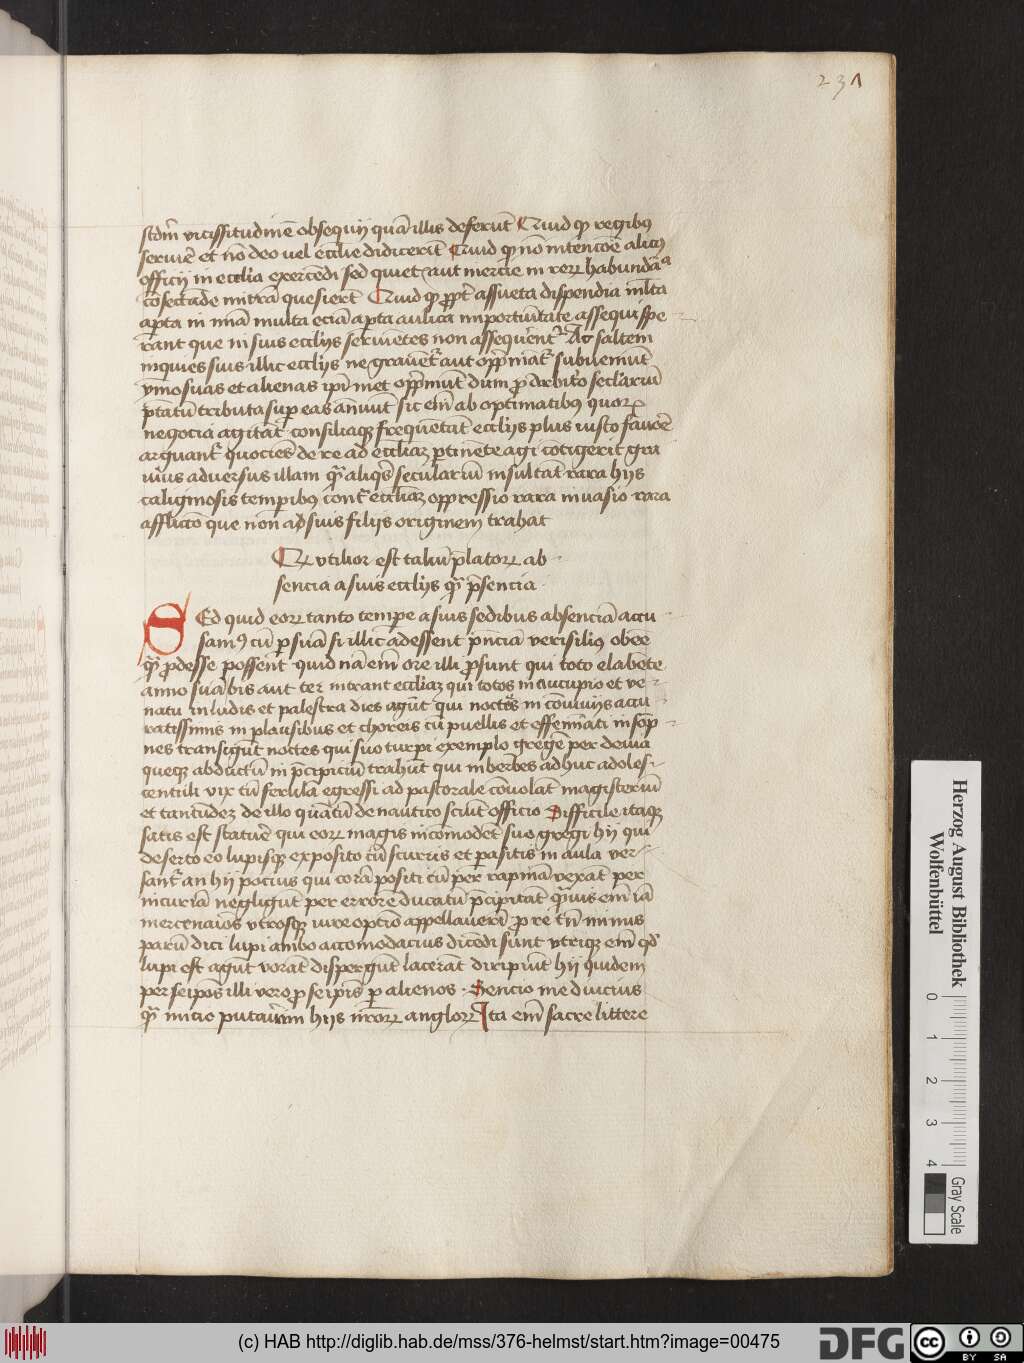 231
stdm̄ vicissitudinē obsequij quā illis deferūt Quid qꝫ regibꝰ
seruiē et nō deo uel eccl̄ie didicerīt Quid qꝫ nō intencōe alicꝰ
officij in eccl̄ia exercēdi sed quiet aut mercīe in rerꝝ habundāᵃ
cōsectāde mitrā quesierīt Quid qꝫ ꝓpt̄ assueta dispendia ml̄ta
aꝑta in
rant que in suis eccl̄ijs seruiētes non assequerentᷣ Ac saltem
inquies suis illic eccl̄ijs ne grauētᷣ aut opp̄mātᷣ subueniūt
ymo suas et alienas ip̄imet opp̄mūt dum ꝓ
p̄tatū tributa suꝑ eas annuūt sic em̄ ab optimatibꝰ quorꝝ
negocia agitāt consiliaqꝫ frequētāt eccl̄ijs plus iusto fauoē
arguantᷣ quocies de re ad eccl̄iaꝫ ꝑtinēte agi cōtigerit gra
uius aduersus illam qᷓ aliqs̄ seculariū insultāt rara hijs
caliginosis temꝑibꝰ contᷓ eccl̄iaꝫ oppressio rara inuasio rara
afflicto que non ad suis filijs originem trahat
Qꝫ vtilior est taliū p̄latorꝝ ab-
sencia a suis eccl̄ijs qᷓ p̄sencia
SEd quid eorꝝ tanto tempe a suis sedibus absenciā accu-
samꝰ cū ꝑ suā si illic adessent p̄nciā verisiliꝰ obeē
qᷓ ꝓdesse possent quid nā em̄ ore illi ꝓsunt qui toto elabēte
anno suā bis aut ter intrant eccl̄iaꝫ qui totos in aucupio et ve-
natu in ludis et palestra dies agūt qui noctes in cōuiuijs accu-
ratissimis in plausibus et choreis cū puellis et effemīati in
nes transigūt noctes qui suo turpi exemplo gregē per deuia
queqꝫ abductū in p̄cipiciū trahūt qui inberbes adhuc adoles-
centuli vix cū ferula egressi ad pastorale cōuolāt magisteriū
et tantūdeꝫ de illo quātū de nautico sciūt officio Difficile itaqꝫ
satis est statuē qui eorꝝ magis incōmodēt suo gregi hij qui
deserto eo lupisqꝫ exposito cū scurris et ꝑasitis in aula ver-
santᷣ an hij pocius qui corā positi cū ꝑer rapinā vexāt per
incuriā negligūt per errorē ducatū p̄cipitāt qᷓuis em̄ iā
mercenaios vtrosqꝫ iure optio appellauerī ꝓ re tn̄ minus
parū dici lupi ambo accomodacius dicēdi sunt vtriqꝫ em̄ qd̄
lupi est agūt vorāt disꝑgūt lacerāt diripiūt hij quidem
per seipos illi vero ꝓ se ipis ꝑ alienos Sencio me duicius
qᷓ inicio putauim hijs
Ita em̄ sacre littere
Herzog August Bibliothek
Wolfenbüttel
0 1 2 3 4
Gray Scale
(c) HAB http://diglib.hab.de/mss/376-helmst/start.htm?image=00475
DFG
cc BY SA